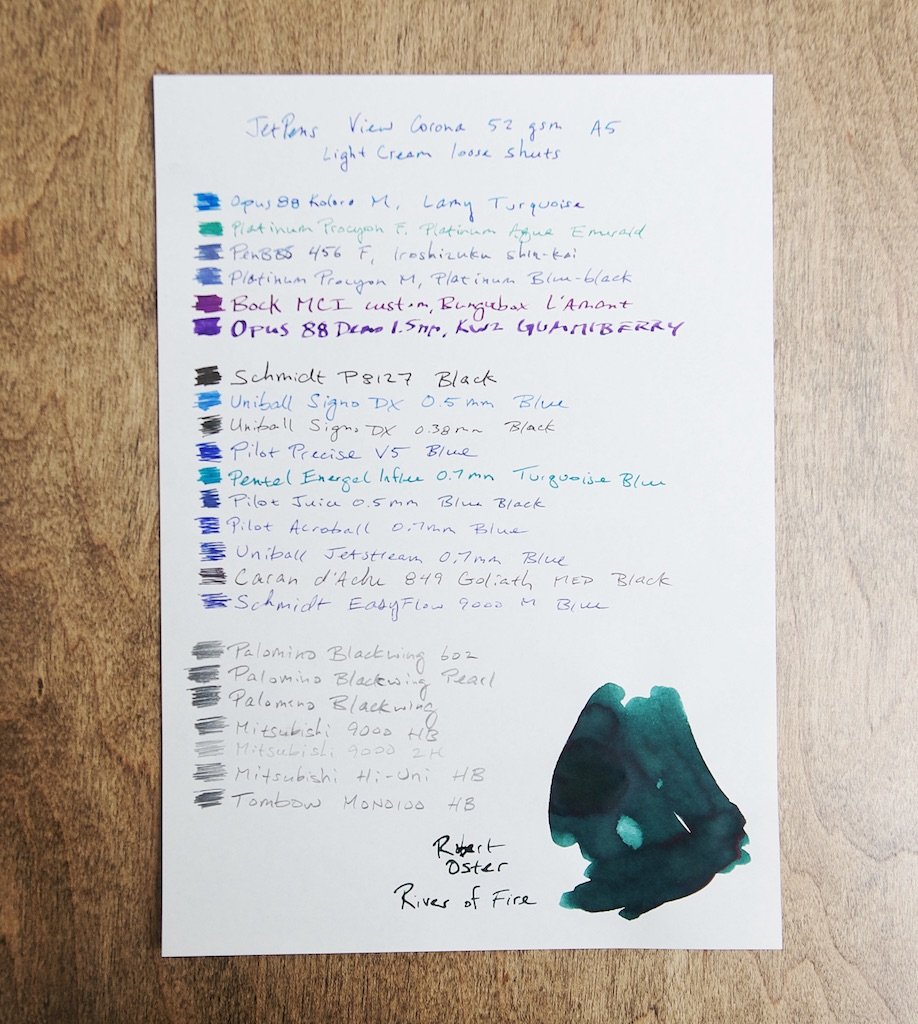 JetPens View Corona 52 gsm A5
Light Cream loose sheets
Opus 88 Koloro M, Lamy Turquoise
Platinum Procyon F, Platinum Aqua Emerald
PenBBS 456 F, Iroshizuku Shin-kai
Platinum Procyon M, Platinum Blue-black
Bock MCI custom, Bungubox L'Amant
Opus 88 Demo 1.5mm, KWZ GUMMIBERRY
Schmidt P8127 Black
Uniball Signo DX 0.5mm Blue
Uniball Signo DX 0.38mm Black
Pilot Precise V5 Blue
Pentel Energel Infree 0.7mm Turquoise Blue
Pilot Juice 0.5mm Blue Black
Pilot Acroball 0.7mm Blue
Uniball Jetstream 0.7mm Blue
Caran d'Ache 849 Goliath MED Black
Schmidt EasyFlow 9000 M Blue
Palomino Blackwing 602
Palomino Blackwing Pearl
Palomino Blackwing
Mitsubishi 9000 HB
Mitsubishi 9000 2H
Mitsubishi Hi-Uni HB
Tombow MONO100 HB
Robert
Oster
River of Fire